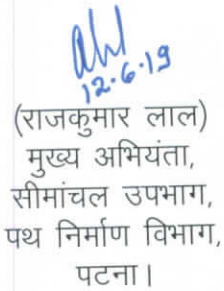 12.6.19
(राजकुमार लाल)
मुख्य अभियंता,
सीमांचल उपभाग,
पथ निर्माण विभाग,
पटना।